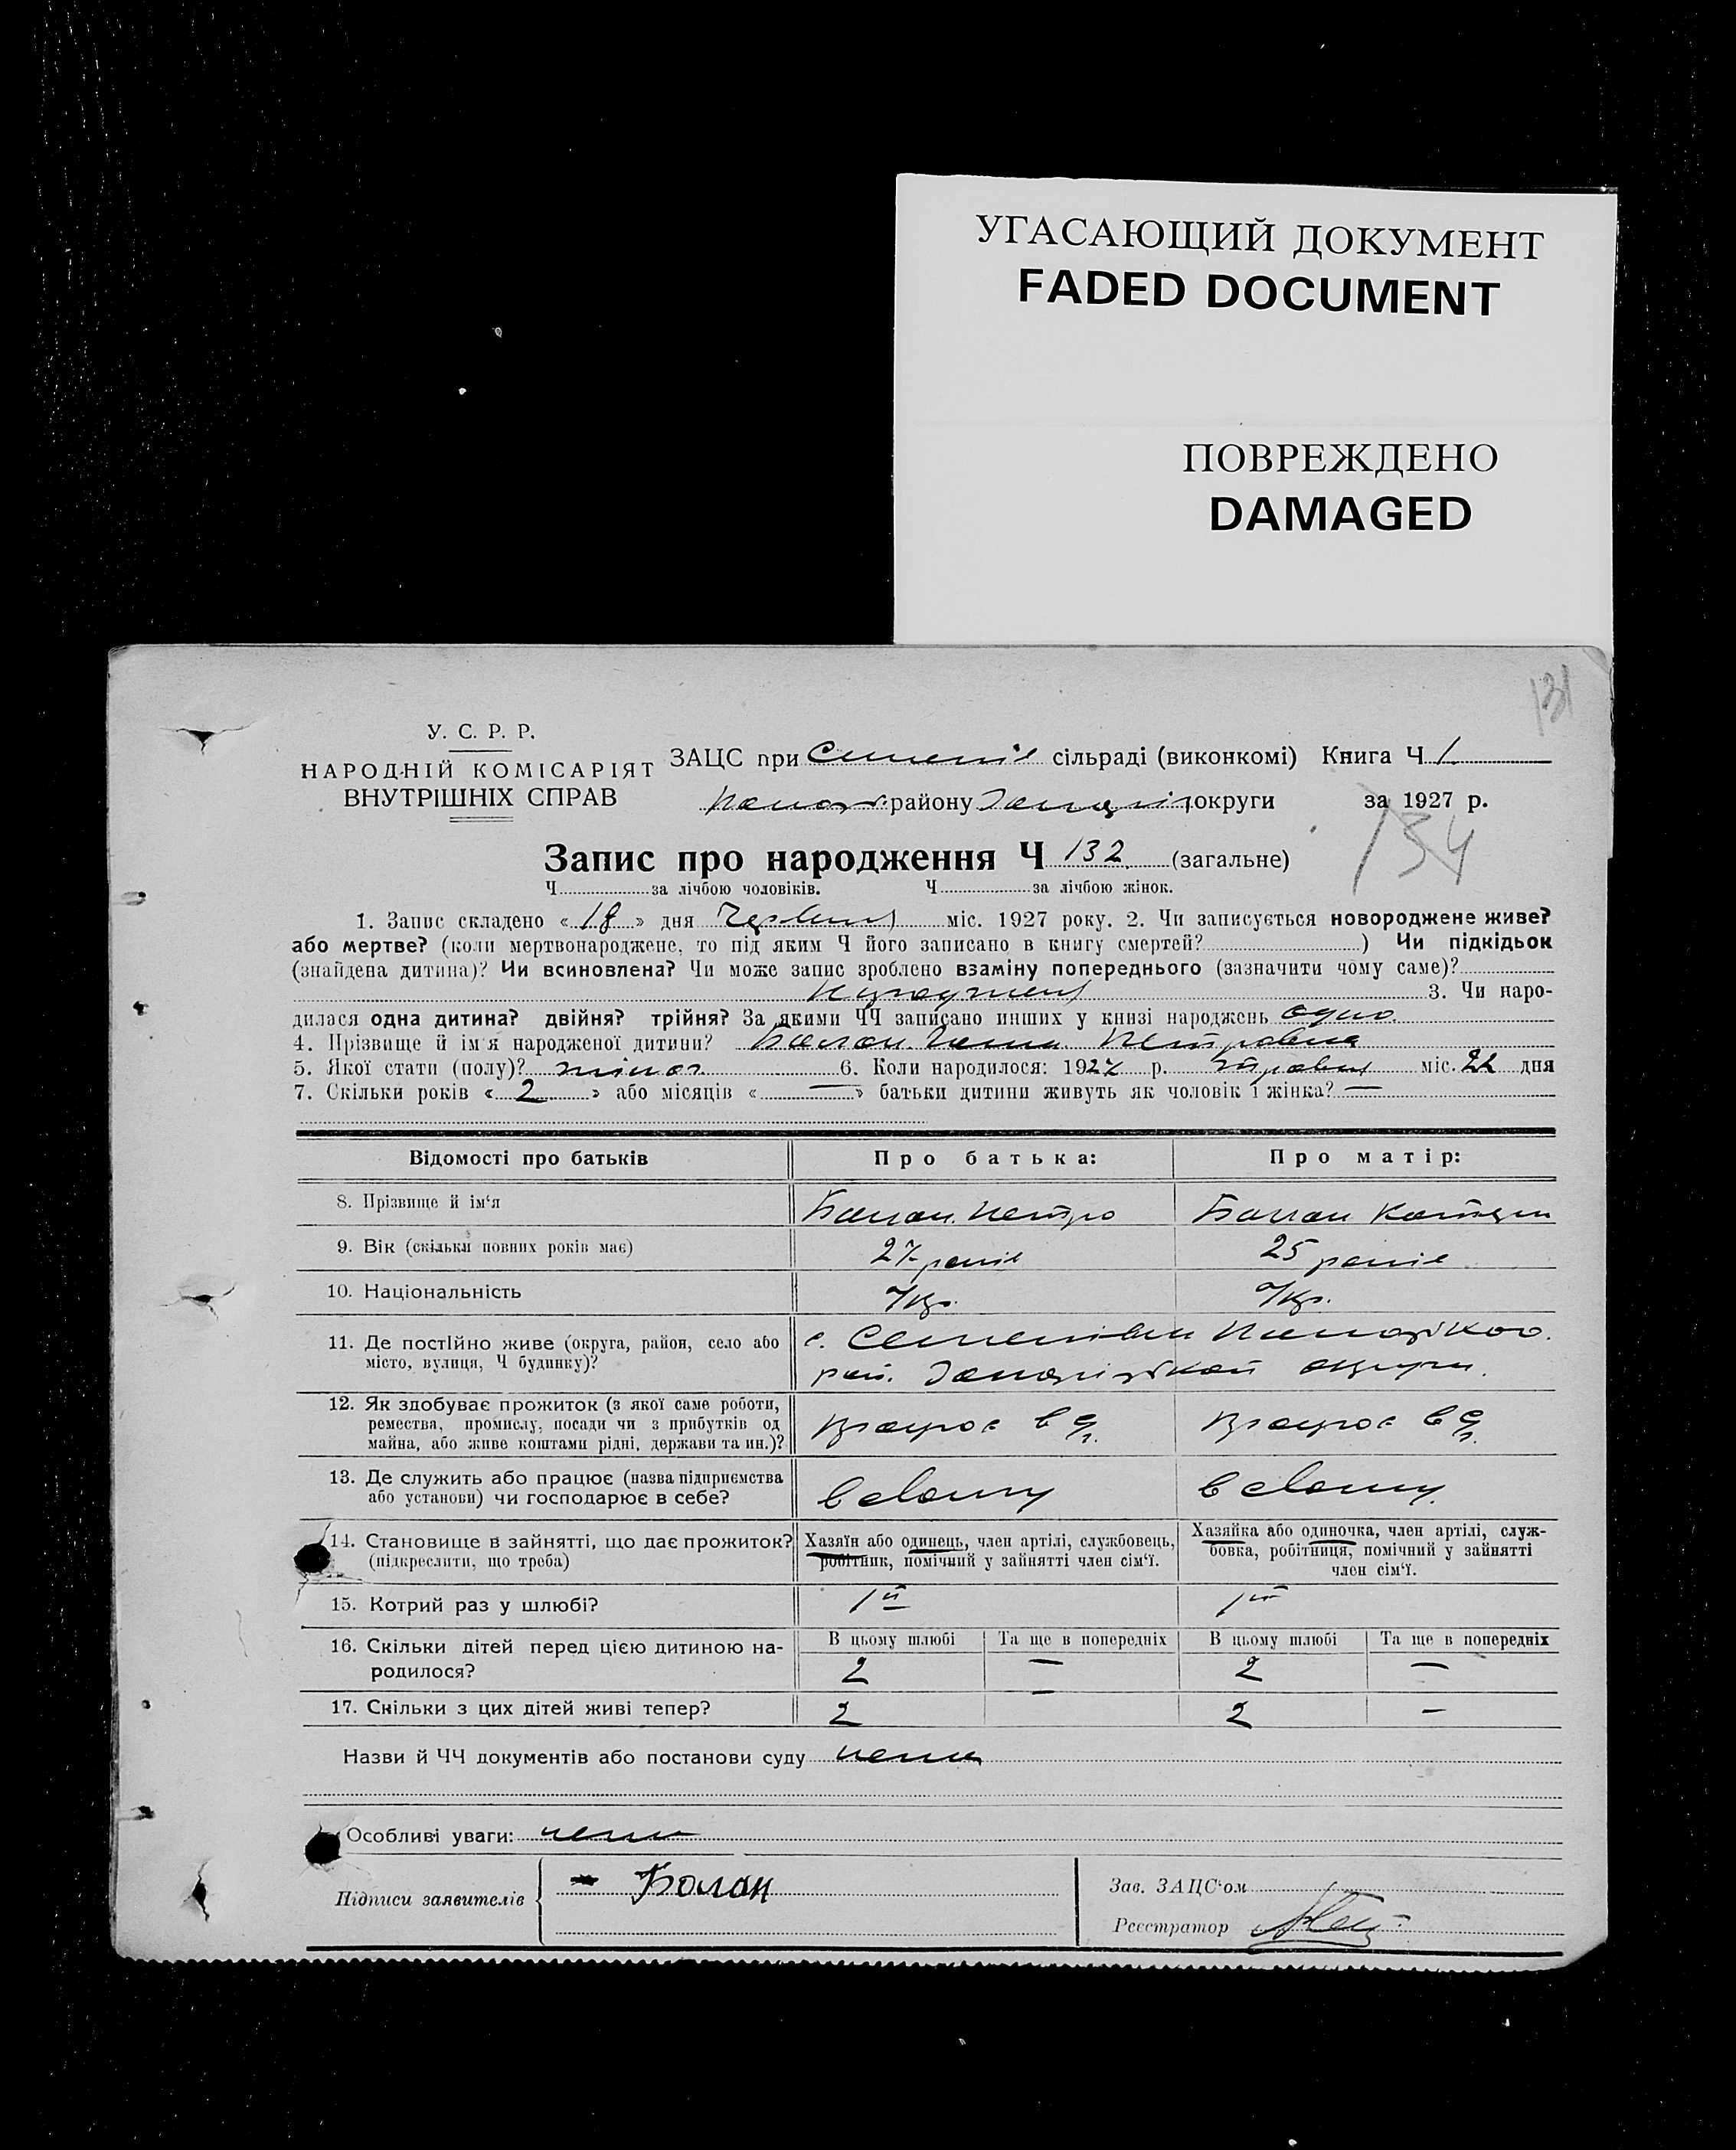 УГАСАЮЩИЙ ДОКУМЕНТ
FADED DOCUMENT
ПОВРЕЖДЕНО
DAMAGED
131
У. С. Р. Р.
НАРОДНІЙ КОМІСАРІЯТ
ВНУТРІШНІХ СПРАВ
ЗАЦС при сільраді (виконкомі) Книга Ч 1
району округи за 1927 р.
134
Запис про народження Ч 132 (загальне)
Ч за лічбою чоловіків. Ч за лічбою жінок.
1. Запис складено « 18 » дня Червня міс. 1927 року. 2. Чи записується новороджене живе?
або мертве? (коли мертвонароджене, то під яким Ч його записано в книгу смертей? ) Чи підкідьок
(знайдена дитина)? Чи всиновлена? Чи може запис зроблено взаміну попереднього (зазначити чому саме)?
3. Чи наро-
дилася одна дитина? двійня? трійня? За якими ЧЧ записано инших у книзі народжень одно
4. Прізвище й ім'я народженої дитини? Петровна
5. Якої стати (полу)? жіноч. 6. Коли народилося: 1927 р. травня міс. 22 дня
7. Скільки років « 2 » або місяців « — » батьки дитини живуть як чоловік і жінка? —
Відомості про батьків Про батька: Про матір:
8. Прізвище й ім'я Болан Петро Болан
9. Вік (скільки повних років має) 27 років 25 років
10. Національність Укр. Укр.
11. Де постійно живе (округа, район, село або с. Семенівки
місто, вулиця, Ч будинку)? рай. Запорізькой округи.
12. Як здобуває прожиток (з якої саме роботи,
ремества, промислу, посади чи з прибутків од
майна, або живе коштами рідні, держави та ин.)?
13. Де служить або працює (назва підприємства
або установи) чи господарює в себе? в свому в свому
14. Становище в зайнятті, що дає прожиток? Хазяїн або одинець, член артілі, службовець, Хазяйка або одиночка, член артілі, служ-
(підкреслити, що треба) робітник, помічний у зайнятті член сім'ї. бовка, робітниця, помічний у зайнятті
член сім'ї.
15. Котрий раз у шлюбі? 1й
16. Скільки дітей перед цією дитиною на- В цьому шлюбі Та ще в попередніх В цьому шлюбі Та ще в попередніх
родилося? 2 — 2 —
17. Скільки з цих дітей живі тепер? 2 — 2 —
Назви й ЧЧ документів або постанови суду нема
Особливі уваги: нема
Підписи заявителів Болан
Зав. ЗАЦС'ом
Реєстратор